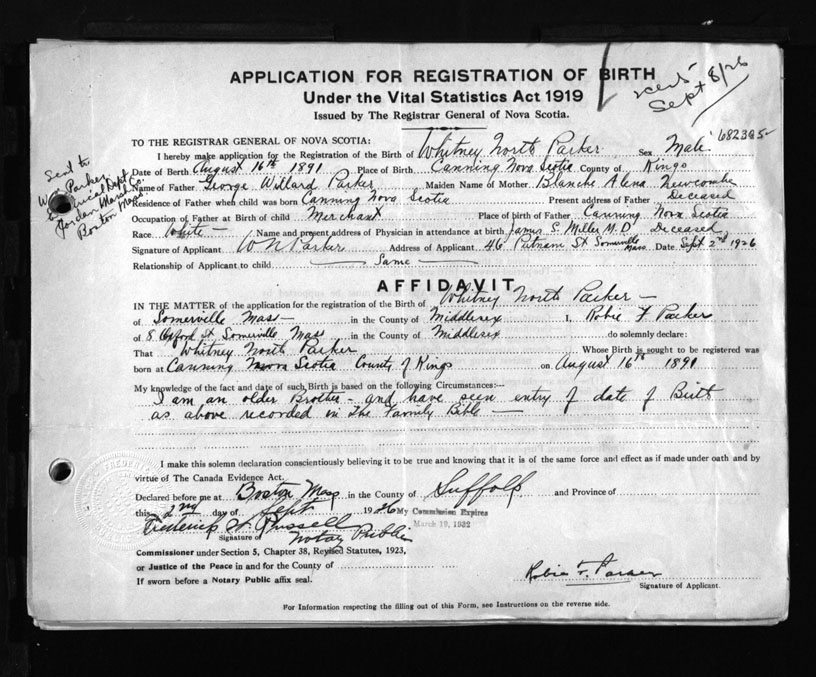 APPLICATION FOR REGISTRATION OF BIRTH
Under the Vital Statistics Act 1919
Issued by The Registrar General of Nova Scotia.
Sept 8/26
682335
Sent to
W N Parker
Electrical Dept
Jordan Marsh Co.
Boston Mass.
TO THE REGISTRAR GENERAL OF NOVA SCOTIA:
I hereby make application for the Registration of the Birth of Whitney North Parker Sex Male
Date of Birth August 16th 1891 Place of Birth Canning Nova Scotia County of Kings
Name of Father George Willard Parker Maiden Name of Mother Blanche Alena Newcombe
Residence of Father when child was born Canning Nova Scotia Present address of Father Deceased
Occupation of Father at Birth of child Merchant Place of birth of Father Canning Nova Scotia
Race White Name and present address of Physician in attendance at birth James S. Miller M.D. Deceased
Signature of Applicant W N Parker Address of Applicant 46 Putnam St Somerville Mass. Date Sept 2nd 1926
Relationship of Applicant to child Same
AFFIDAVIT
IN THE MATTER of the application for the registration of the Birth of Whitney North Parker
of Somerville Mass in the County of Middlesex I, Robie F Parker
of 8 Oxford St Somerville Mass in the County of Middlesex do solemnly declare:
That Whitney North Parker Whose Birth is sought to be registered was
born at Canning Nova Scotia County of Kings on August 16th 1891
My knowledge of the fact and date of such Birth is based on the following Circumstances:—
I am an older Brother - and have seen entry of date of Birth
as above recorded in The Family Bible
I make this solemn declaration conscientiously believing it to be true and knowing that it is of the same force and effect as if made under oath and by
virtue of The Canada Evidence Act.
Declared before me at Boston Mass in the County of Suffolk and Province of
this 2nd day of Sept 1926 My Commission Expires
March 19, 1932
Frederick H Russell
Signature of Notary Public
Commissioner under Section 5, Chapter 38, Revised Statutes, 1923,
or Justice of the Peace in and for the County of
If sworn before a Notary Public affix seal.
Robie F. Parker
Signature of Applicant.
For Information respecting the filling out of this Form, see Instructions on the reverse side.